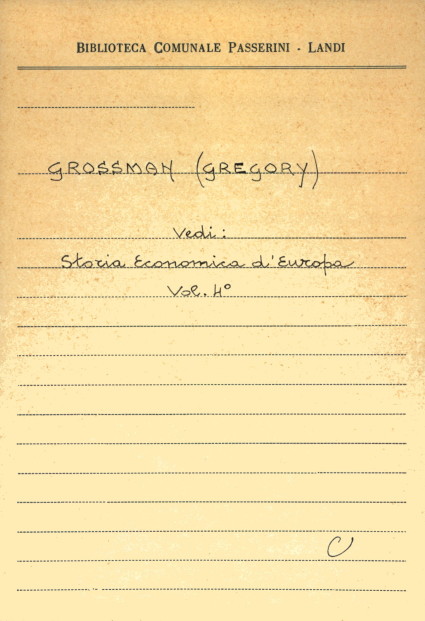 BIBLIOTECA COMUNALE PASSERINI - LANDI
GROSSMAN (GREGORY)
Vedi:
Storia Economica d'Europa
Vol. 4°
C